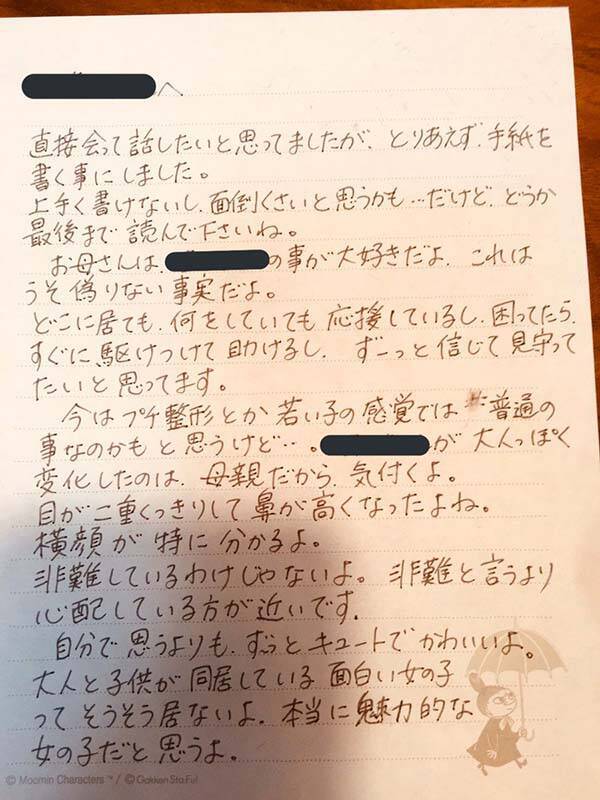 へ
直接会って話したいと思ってましたが、とりあえず、手紙を
書く事にしました。
上手く書けないし、面倒くさいと思うかも…だけど、どうか
最後まで読んで下さいね。
お母さんは、の事が大好きだよ、これは
うそ偽りない事実だよ。
どこに居ても、何をしていても応援しているし、困ってたら、
すぐに駆けつけて助けるし、ずーっと信じて見守って
たいと思ってます。
今はプチ整形とか若い子の感覚では普通の
事なのかもと思うけど…。が大人っぽく
変化したのは、母親だから、気付くよ。
目が二重くっきりして鼻が高くなったよね。
横顔が特に分かるよ。
非難しているわけじゃないよ。非難と言うより
心配している方が近いです。
自分で思うよりも、ずっとキュートでかわいいよ。
大人と子供が同居している面白い女の子
ってそうそう居ないよ、本当に魅力的な
女の子だと思うよ。
© Moomin Characters™ / © Gakken Sta:Ful